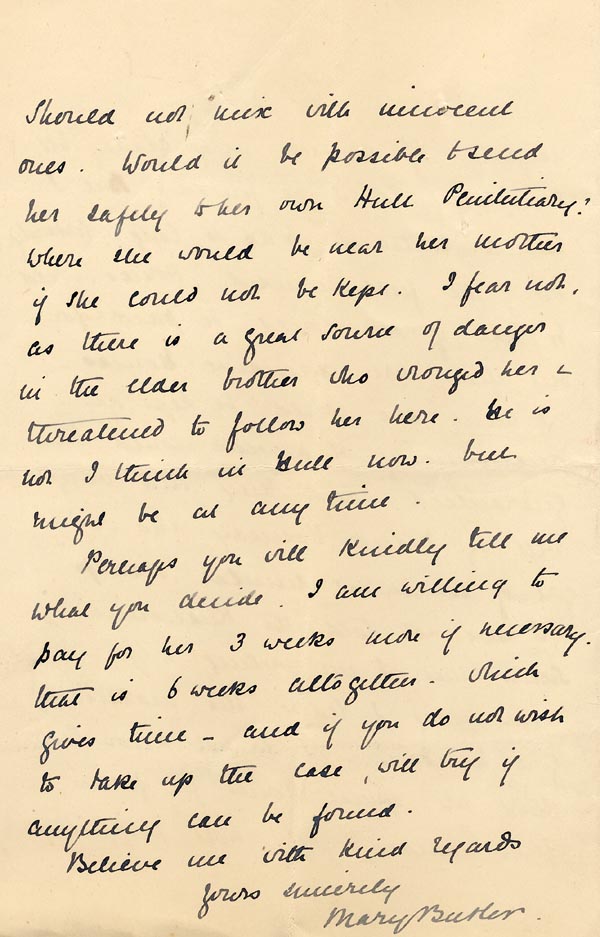 Should not mix with innocent
ones. Would it be possible to send
her safely to her own Hull Penitentiary?
where she would be near her mother
if she could not be kept. I fear not,
as there is a great source of danger
in the elder brother who wronged her &
threatened to follow her here. He is
not I think in Hull now. but
might be at any time.
Perhaps you will kindly tell me
what you decide. I am willing to
pay for her 3 weeks more if necessary.
that is 6 weeks altogether. which
gives time – and if you do not wish
to take up the case, will try if
anything can be found.
Believe me with kind regards
Yours sincerely
Mary Butler.